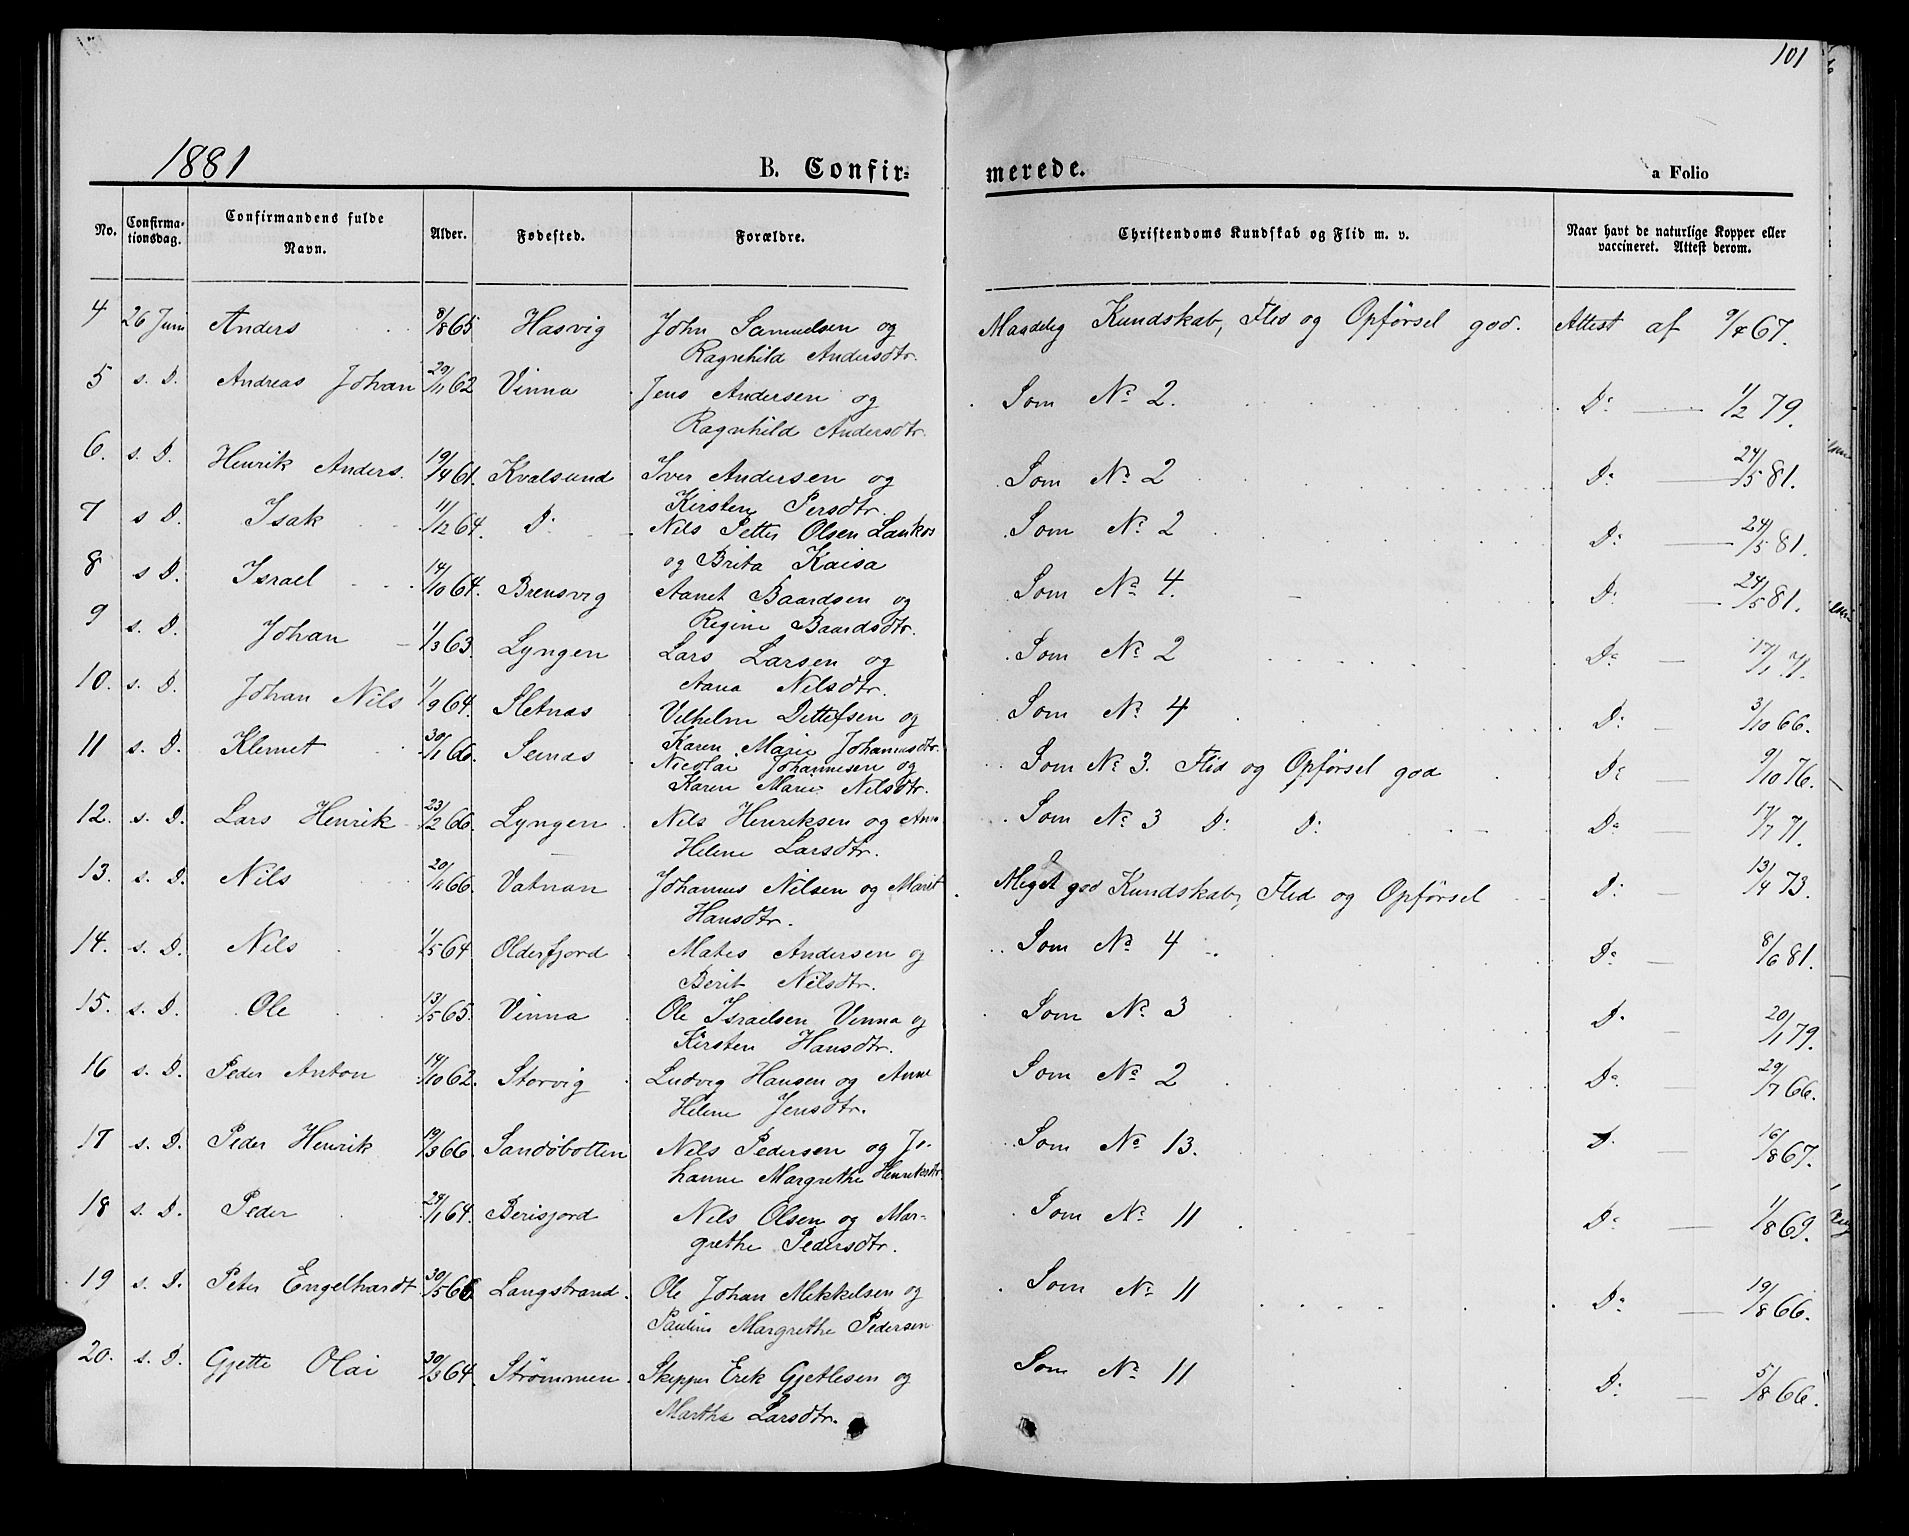 101
1881
B. Confir= merede.
a Folio
No. Confirma-tionsdag. Confirmandens fulde Navn. Alder. Fødested. Forældre. Christendoms Kundskab og Flid m. v. Naar havt de naturlige Kopper eller vaccineret. Attest derom.
4 26 Juni Anders 8/8 65 Hasvig John Samuelsen og Maadelig Kundskab, Flid og Opførsel god. Attest af 9/7 67.
Ragnhild Andersdtr.
5 s. D. Andreas Johan 29/11 62 Vinna Jens Andersen og Som No 2. Do 1/2 79.
Ragnhild Andersdtr.
6. s. D. Henrik Anders. 19/9 61. Kvalsund Iver Andersen og Som No 2 Do 24/5 81.
Kirsten Persdtr.
7 s D. Isak 11/12 64. Do Nils Petter Olsen Lankos Som No 2 Do 24/5 81.
og Brita Kaisa
8 s D. Israel 14/10 64. Brensvig Aanet Baardsen og Som No 4. Do 24/5 81.
Regine Baardsdtr.
9 s. D. Johan 1/3 63. Lyngen Lars Larsen og Som No 2 Do 17/7 71.
Aana Nilsdtr.
10. s. D. Johan Nils 1/9 64. Sletnes Vilhelm Dettefsen og Som No 4 Do 3/10 66.
Karen Marie Johannesdtr.
11 s. D. Klemet 30/1 66. Seinas Nicolai Johannesen og Som No 3. Flid og Opførsel god Do 9/10 76.
Karen Marie Nilsdtr.
12. s. D. Lars Henrik 23/2 66. Lyngen Nils Henriksen og Ane Som No 3 Do Do Do 17/7 71.
Helene Larsdtr.
13. s. D. Nils 20/4 66. Vatnan Johannes Nilsen og Marit Meget god Kundskab, Flid og Opførsel Do 13/4 73.
Hansdtr.
14. s. D. Nils 1/5 64 Olderfjord Mates Andersen og Som No 4 Do 8/6 81.
Berit Nilsdtr.
15. s. D. Ole 13/5 65. Vinna Ole Israelsen Vinna og Som No 3 Do 20/1 79.
Kirsten Hansdtr.
16 s. D. Peder Anton 14/10 62. Storvig Ludvig Hansen og Anne Som No 2 Do 29/7 66.
Helene Jensdtr.
17 s. D. Peder Henrik 19/3 66. Sandøbotten Nils Pedersen og Jo- Som No 13. Do 16/8 67.
hanne Margrethe Henriksdtr.
18 s. D. Peder 29/1 64. Berisfjord Nils Olsen og Mar- Som No 11 Do 1/8 69.
grethe Pedersdtr.
19 s. D. Peter Engelhardt 30/5 66 Langstrand. Ole Johan Mikkelsen og Som No 11 Do 19/8 66.
Pauline Margrethe Pedersen
20. s. D. Gjette Olai 30/3 64. Strømmen Skipper Erik Gjetlesen og Som No 11 Do 5/8 66.
Martha Larsdtr.